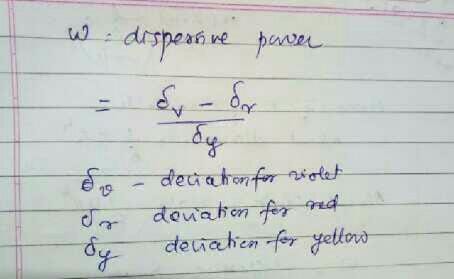 ω = dispersive power
= δv - δr
δy
δv - deviation for violet
δr deviation for red
δy deviation for yellow